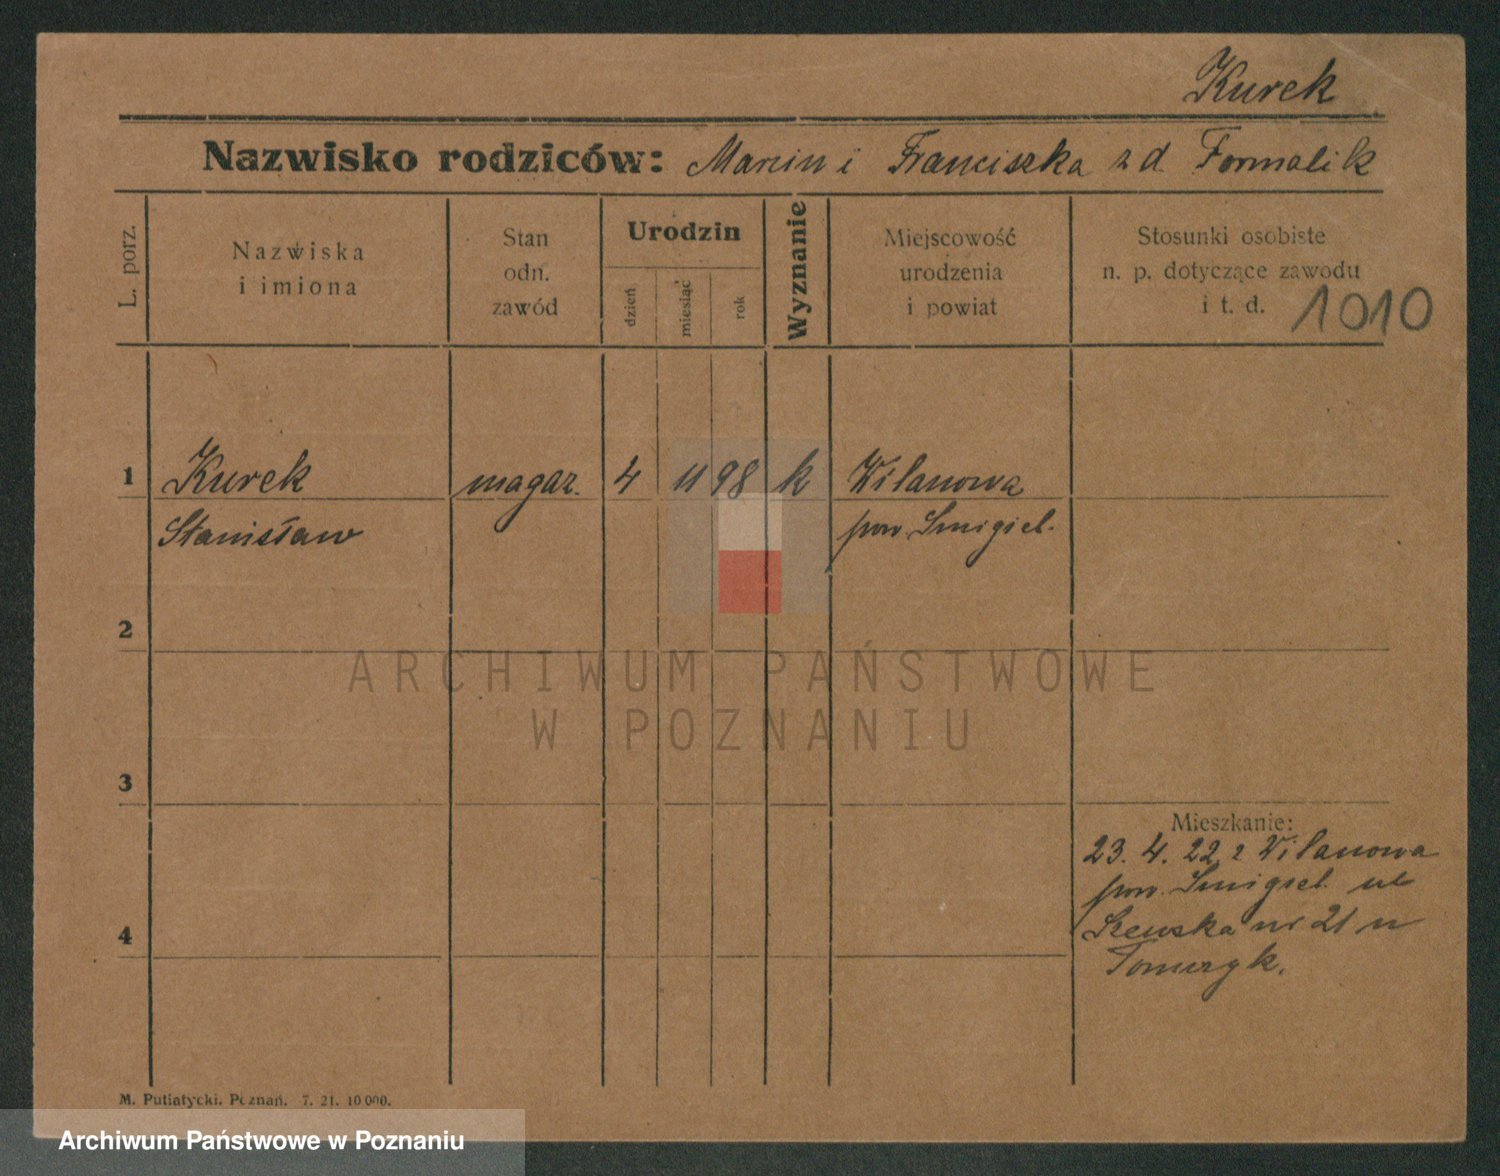 Kurek
Nazwisko rodziców: Marcin i Franciszka z d. Formalik
L. porz.
Nazwiska
i imiona
Stan
odn.
zawód
Urodzin
dzień
miesiąc
rok
Wyznanie
Miejscowość
urodzenia
i powiat
Stosunki osobiste
n. p. dotyczące zawodu
i t. d.
1010
1 Kurek magaz. 4 11 98 k Wilanowa
Stanisław pow. Śmigiel.
2
3
4
Mieszkanie:
23. 4. 22 z Wilanowa
pow. Śmigiel. ul
Szewska nr 21 u
ARCHIWUM PAŃSTWOWE
W POZNANIU
M. Putiatycki, Poznań. 7. 21. 10 000.
Archiwum Państwowe w Poznaniu